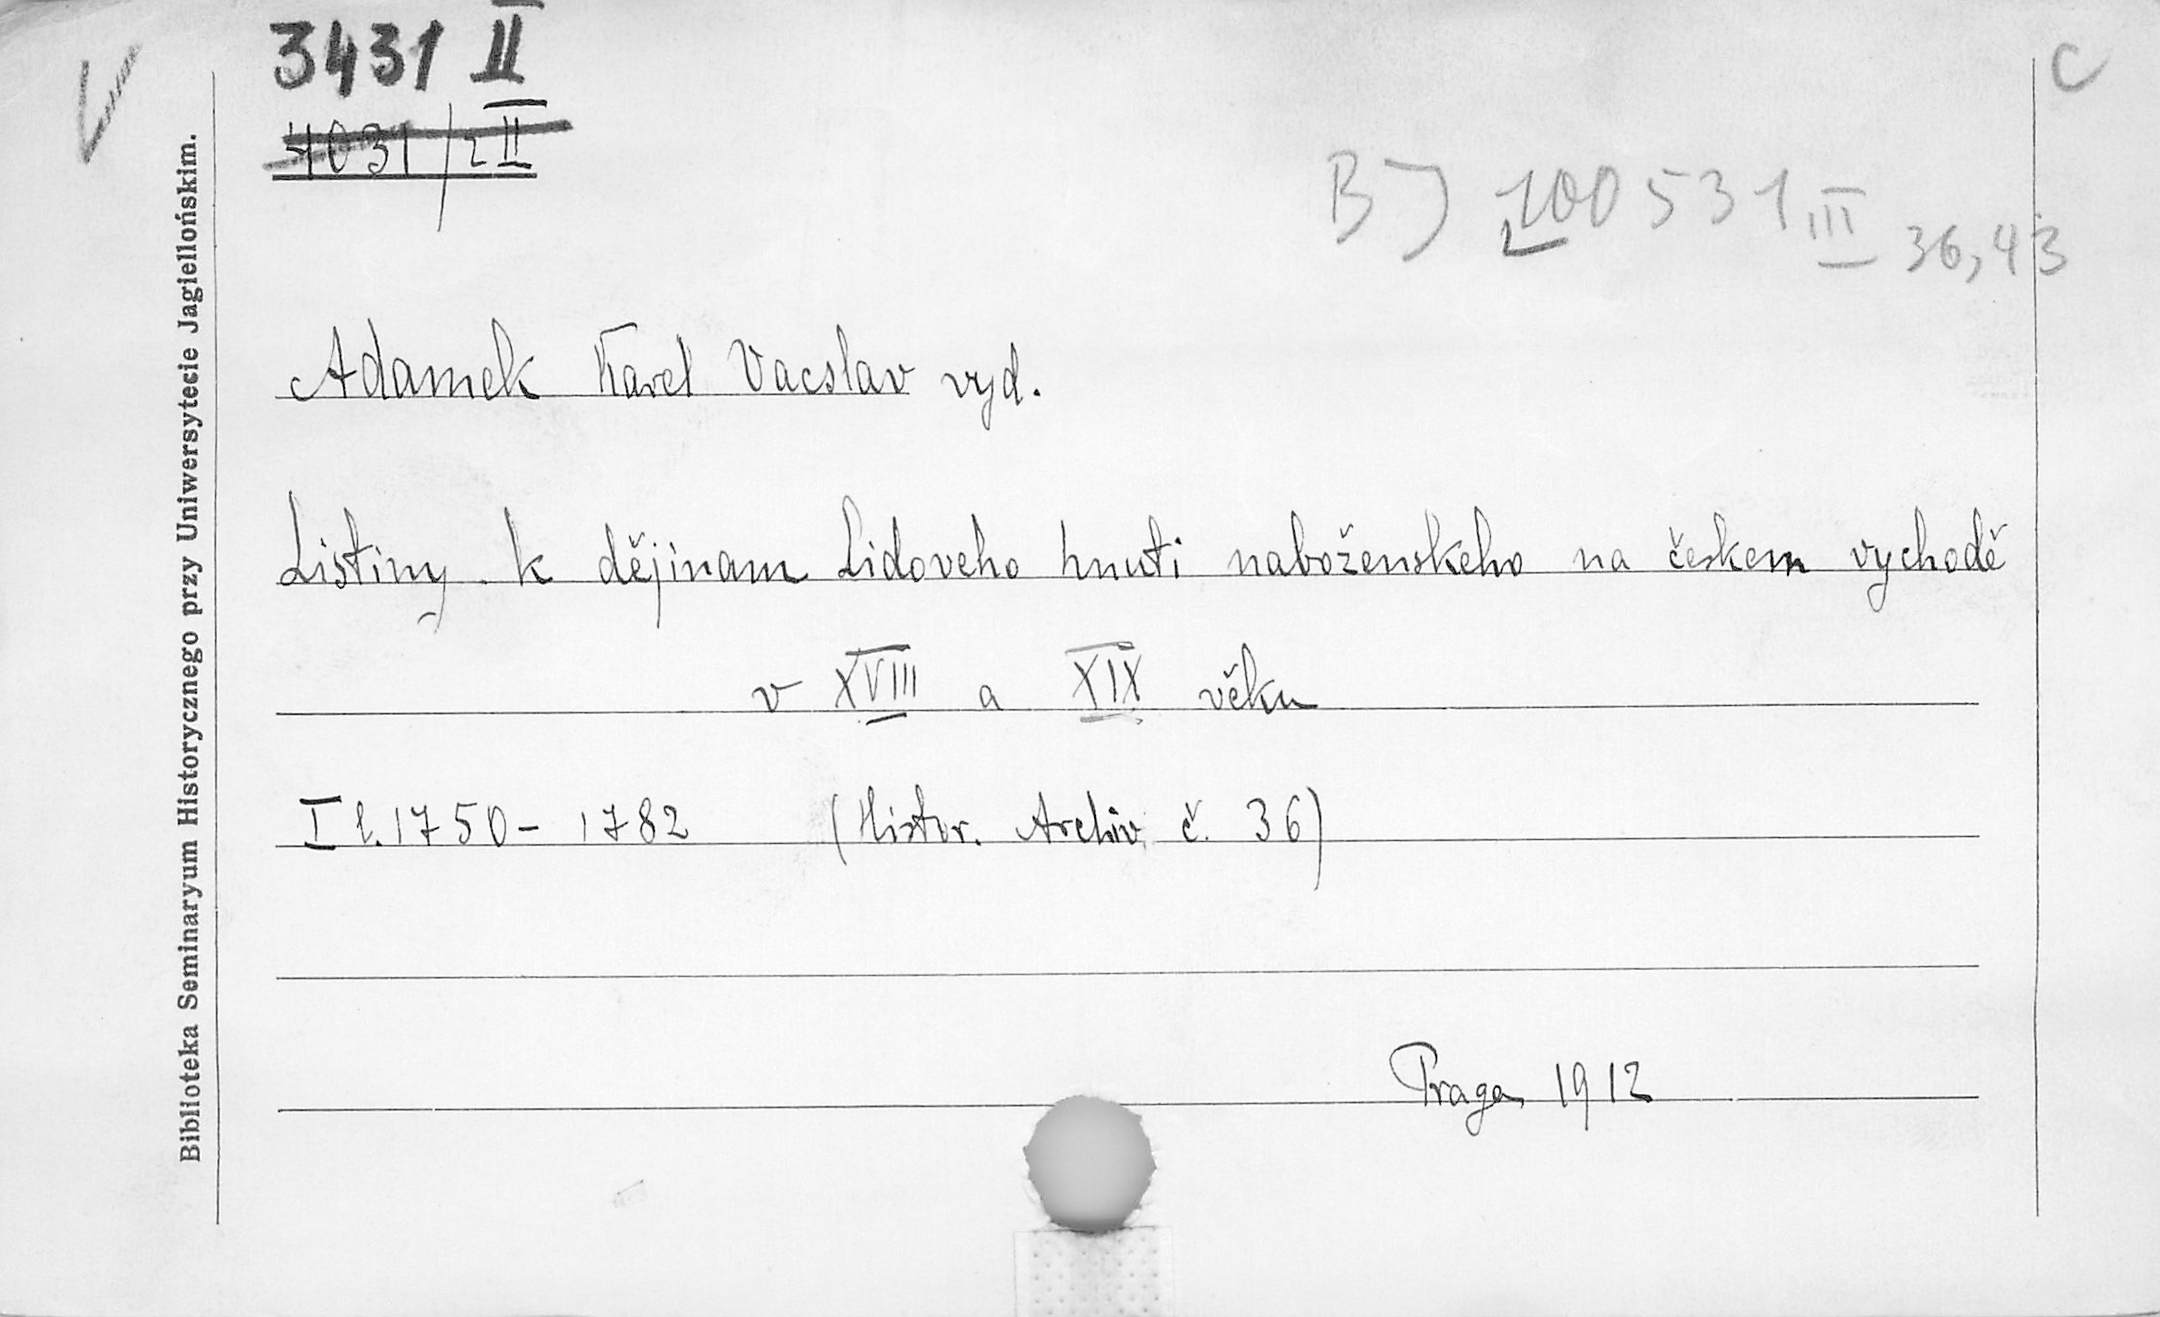 3431 II
4031/2 II
C
BJ 200531 III 36,43
Biblioteka Seminaryum Historycznego przy Uniwersytecie Jagiellońskim.
Adamek Karel Vacslav vyd.
Listiny k dějinam Lidoveho hnuti naboženskeho na českem vychodě
v XVIII a XIX věku
I l. 1750-1782 (Histor. Archiv č. 36)
Praga 1912